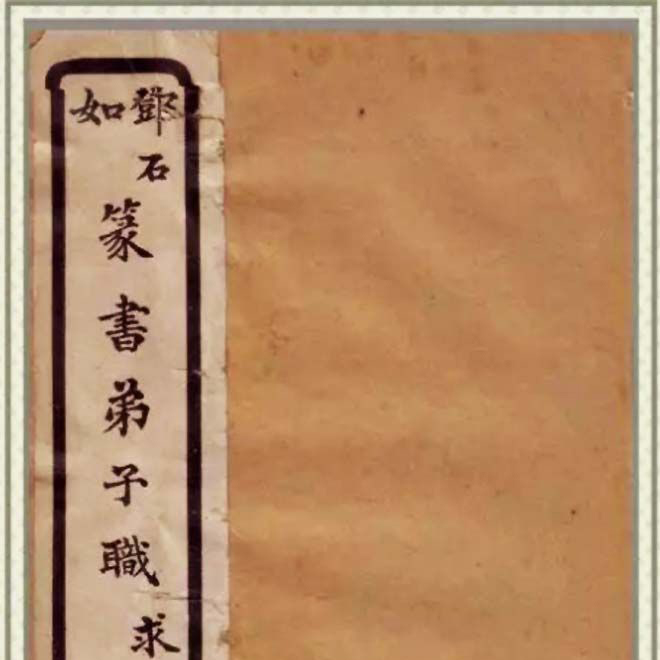 鄧石如
篆書弟子職
求